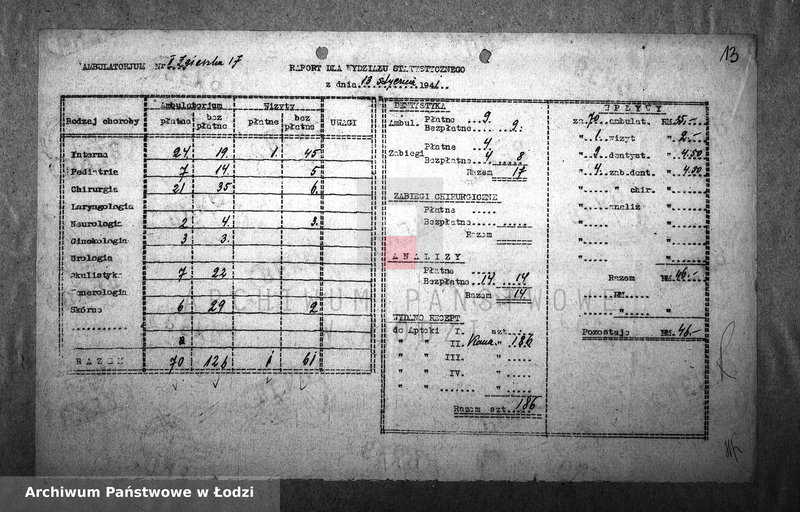 13
AMBULATORJUM NR I Zgierska 17
RAPORT DLA WYDZIAŁU STATYSTYCZNEGO
z dnia 13 stycznia 194
Rodzaj choroby Ambulatorium Wizyty UWAGI
płatne bez płatne płatne bez płatne
Interna 24. 19. 1. 45
Pediatria 7 14. 5
Chirurgia 21 35 6.
Laryngologia
Neurologia 2 4. 3.
Ginekologia 3 3.
Urologia
Okulistyka 7 22
Wenerologia
Skórne 6 29 2
RAZEM 70 126 1 61
DENTYSTYKA
Ambul. Płatne 9.
Bezpłatne 9.
Zabiegi Płatne 4.
Bezpłatne 4. 8
Razem 17
ZABIEGI CHIRURGICZNE
Płatne
Bezpłatne
Razem
ANALIZY
Płatne
Bezpłatne 14 14
Razem 14
WYDANO RECEPT
do Apteki I. szt.
" " II. 186
" " III. "
" " IV. "
" " "
Razem szt. 186
WPŁYWY
za 70 ambulat. RM. 35.-
" 1 wizyt " 2.-
" 9 dentyst. " 4.50
" 4 zab.dent. " 4.50
" " chir. "
" analiz "
Razem RM. 46.-
RM.
Pozostaje RM. 46.-
ARCHIWUM PAŃSTWOWE
W ŁODZI
Archiwum Państwowe w Łodzi